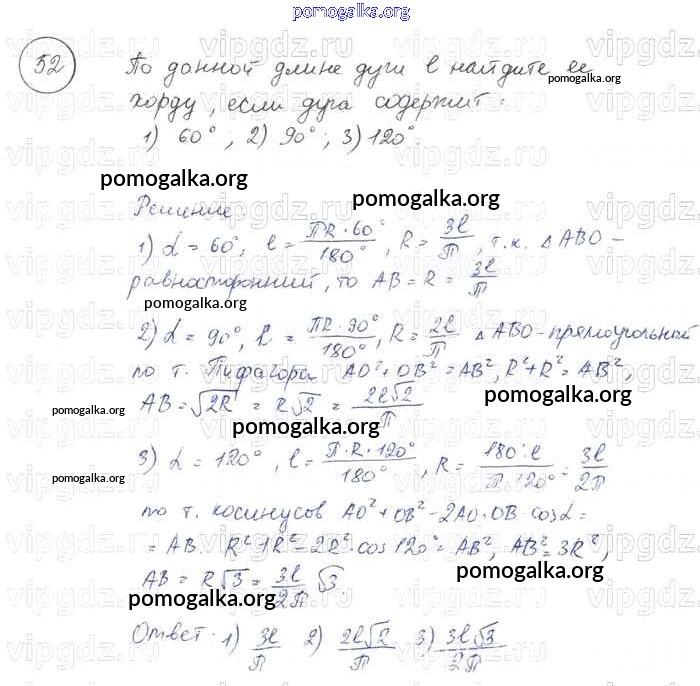 pomogalka.org
52
По данной длине дуги l найдите ее
хорду, если дуга содержит:
1) 60°, 2) 90°, 3) 120°
pomogalka.org
pomogalka.org
Решение.
pomogalka.org
1) α = 60°, l = ΠR·60°/180°, R = 3l/Π, т.к. △ABO –
равносторонний, то AB = R = 3l/Π
pomogalka.org
2) α = 90°, l = ΠR·90°/180°, R = 2l/Π △ABO – прямоугольный
по т. Пифагора AO² + OB² = AB², R² + R² = AB²,
pomogalka.org
AB = √2R² = R√2 = 2l√2/Π
pomogalka.org
3) α = 120°, l = Π·R·120°/180°, R = 180°·l/Π·120° = 3l/2Π
pomogalka.org
по т. косинусов AO² + OB² – 2AO·OB·cosα =
= AB. R² + R² – 2R²·cos120° = AB², AB² = 3R²,
pomogalka.org
AB = R√3 = 3l/2Π √3.
pomogalka.org
Ответ. 1) 3l/Π 2) 2l√2/Π 3) 3l√3/2Π
pomogalka.org
vipgdz.ru